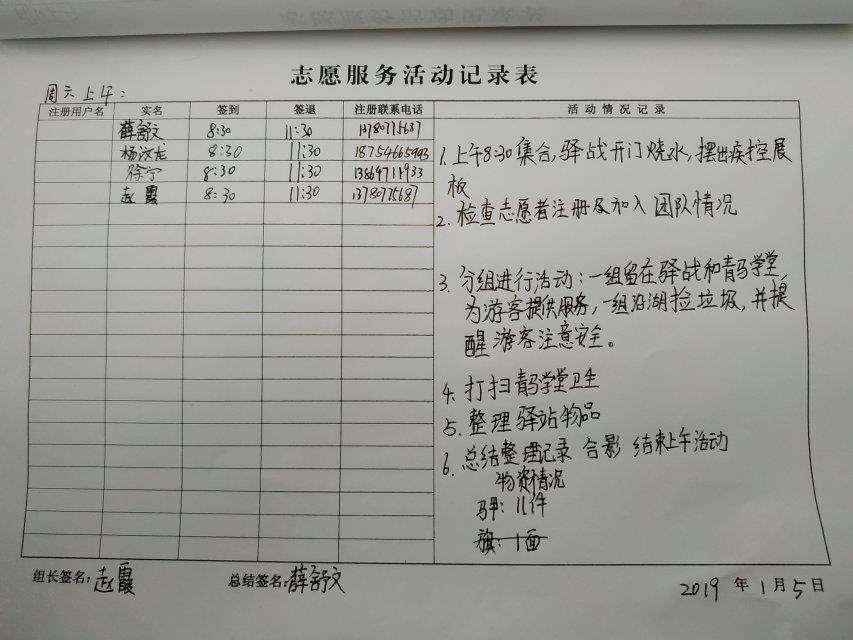 志愿服务活动记录表
周六上午：
注册用户名 实名 签到 签退 注册联系电话 活动情况记录
薛舒文 8:30 11:30 13780775687
杨汶龙 8:30 11:30 18754665993
徐宁 8:30 11:30 13864711933
赵霞 8:30 11:30 13780775687
1. 上午8:30集合，驿战开门烧水，摆出疾控展
板
2. 检查志愿者注册及加入团队情况
3. 分组进行活动：一组留在驿战和青马学堂，
为游客提供服务，一组沿湖捡垃圾，并提
醒游客注意安全。
4. 打扫青马学堂卫生
5. 整理驿站物品
6. 总结整理记录 合影 结束上午活动
物资情况
马甲：11件
旗：1面
组长签名：赵霞 总结签名：薛舒文 2019年1月5日